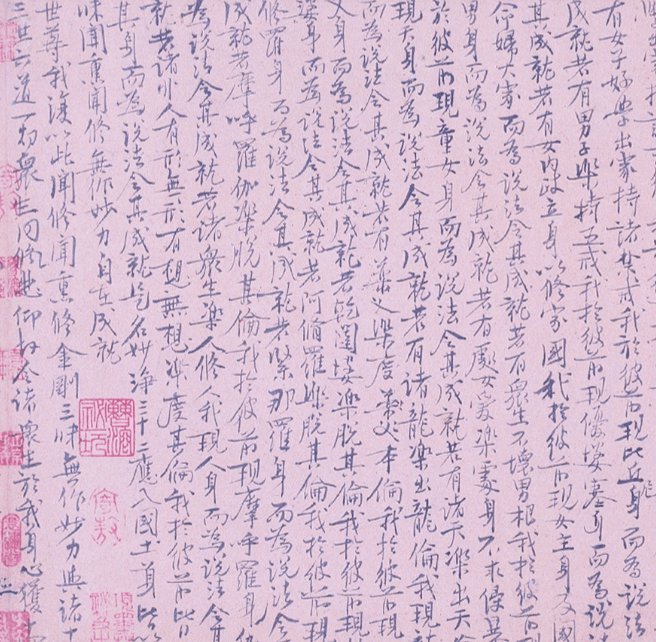 有女子好學出家持諸禁戒我於彼前現比丘身而為說法
成就若有男子樂持五戒我於彼前現優婆塞身而為說
其成就若有女內政立身以修家國我於彼前現女主身及國
命婦大家而為說法令其成就若有眾生不壞男根我於彼前
男身而為說法令其成就若有處女愛樂處身不求侵暴
於彼前現童女身而為說法令其成就若有諸天樂出天
現天身而為說法令其成就若有諸龍樂出龍倫我現
而為說法令其成就若有藥叉樂度藥叉本倫我於彼前現
叉身而為說法令其成就若乾闥婆樂脫其倫我於彼前現
婆身而為說法令其成就若阿脩羅樂脫其倫我於彼前現
脩羅身而為說法令其成就若緊那羅身而為說法令
成就若摩呼羅伽樂脫其倫我於彼前現摩呼羅身
為說法令其成就若諸眾生樂人修人我現人身而為說法令其
就若諸非人有形無形有想無想樂度其倫我於彼前皆
其身而為說法令其成就是名妙淨三十二應入國土身皆
昧聞熏聞修無作妙力自在成就
世尊我復以此聞修聞熏修金剛三昧無作妙力與諸十
三世六道一切眾生同悲仰故令諸眾生於我身心獲